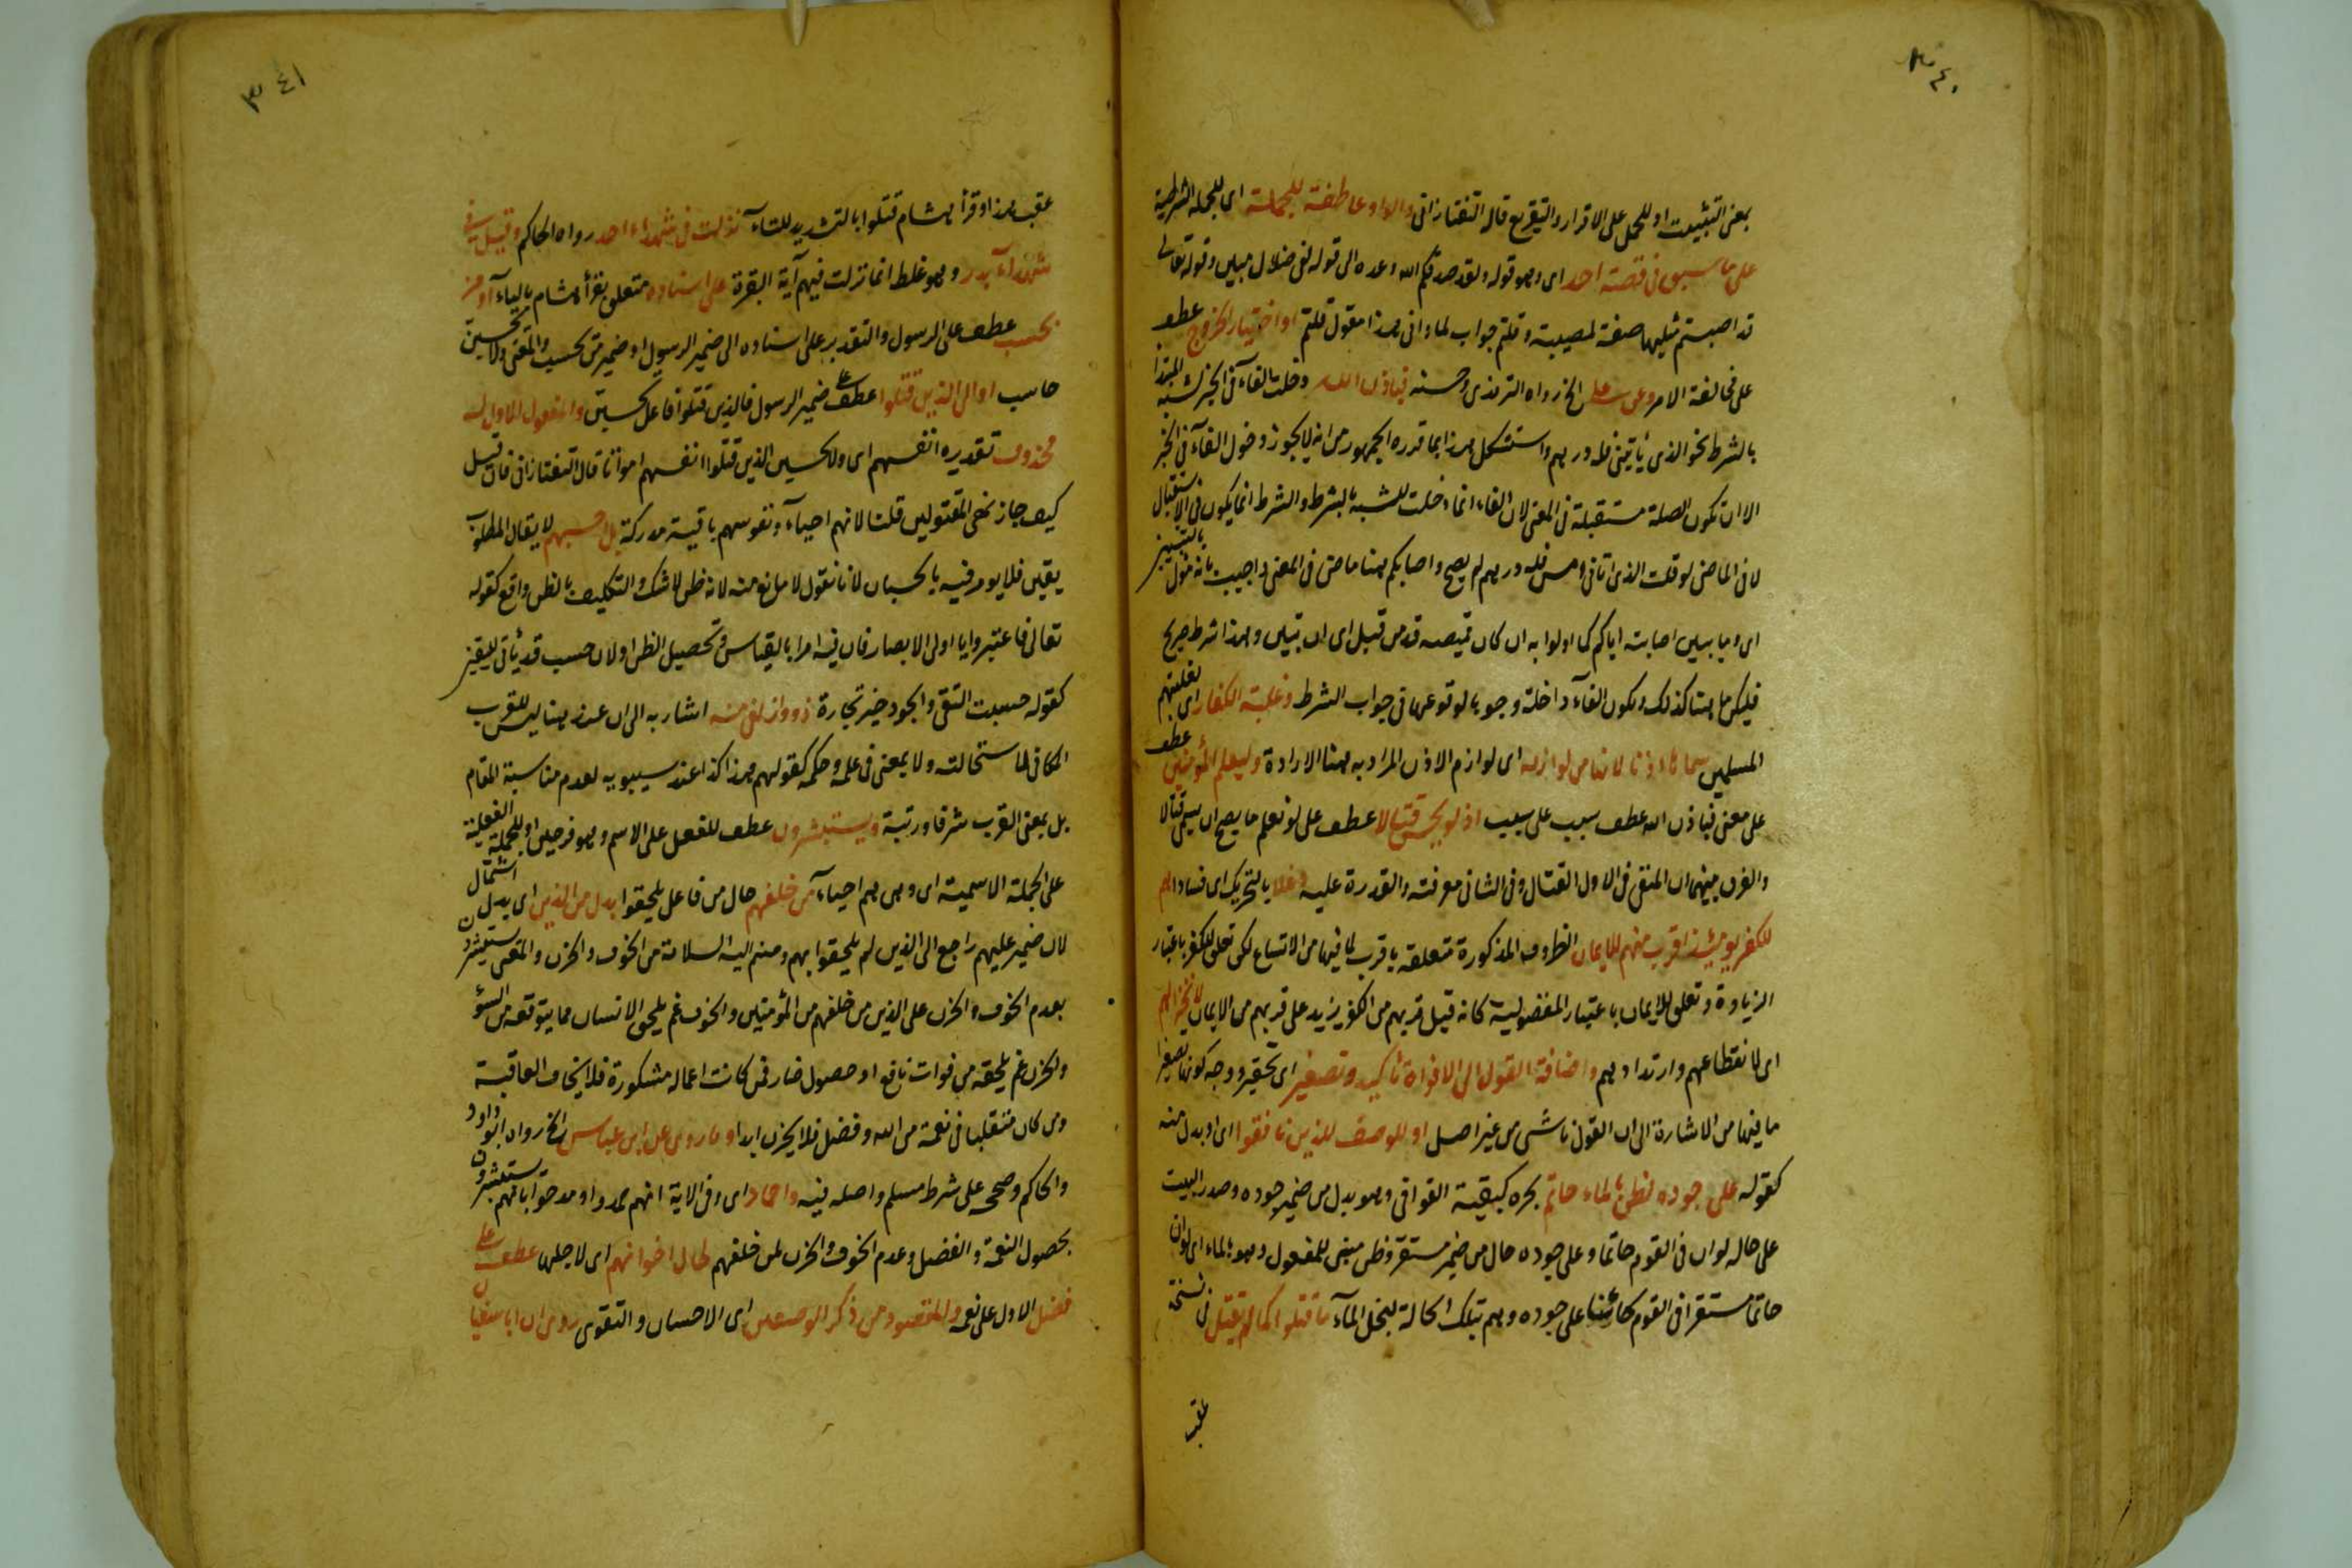 ٣٤٠
بمعنى التثبيت او للحمل على الاقرار والتقريع قاله التفتازانى والواو عاطفة للجملة اى للجملة الشرطية
على ما سبق فى قصة احد اى وهو قوله ولقد صدقكم الله وعده الى قوله لفى ضلال مبين وقوله تعالى
قد اصبتم مثليها صفة لمصيبة وقلتم جواب لما وانى هذا مقول قلتم او اختيار الخروج عطف
على مخالفة الامر وعن على الخ رواه الترمذى وحسنه فباذن الله دخلت الفاء فى الخبر لشبه المبتدا
بالشرط نحو الذى يأتينى فله درهم واستشكل هذا بما قدره الجمهور من انه لا يجوز دخول الفاء فى الخبر
الا ان تكون الصلة مستقبلة فى المعنى لان الفاء انما دخلت للشبه بالشرط والشرط انما يكون فى الاستقبال
لا فى الماضى لو قلت الذى اتانى امس فله درهم لم يصح واصابكم هنا ماض فى المعنى واجيب بانه مؤل بالتبيين
اى وما يبين اصابته اياكم كما اولوا به ان كان قميصه قد من قبل اى ان تبين وهذا شرط صريح
فليكن ما هنا كذلك وتكون الفاء داخلة وجوبا لوقوعها فى جواب الشرط وغلبة الكفار اى تغليبهم
المسلمين سماها اذنا لانها من لوازمه اى لوازم الاذن المراد به هنا الارادة وليعلم المؤمنين عطف
على معنى فباذن الله عطف سبب على سبب اذ لو يحسن قتالا عطف على لو نعلم ما يصح ان يسمى قتالا
والفرق بينهما ان المنفى فى الاول القتال وفى الثانى معرفته والقدرة عليه دغلا بالتحريك اى فسادا هم
للكفر يومئذ اقرب منهم للايمان الظروف المذكورة متعلقة باقرب لما فيها من الاتساع لكن تعلق للكفر باعتبار
الزيادة وتعلق للايمان باعتبار المفضولية كانه قيل قربهم من الكفر يزيد على قربهم من الايمان لانخزالهم
اى لانقطاعهم وارتدادهم واضافة القول الى الافواه تاكيد وتصغير اى تحقير ووجه كونها تصغيرا
ما فيها من الاشارة الى ان القول ناشى من غير اصل او للوصف للذين نافقوا اى او بدل منه
كقوله على جوده لضن بالماء حاتم بجره كبقية القوافى وهو بدل من ضمير جوده وصدر البيت
على حالة لو ان فى القوم حاتما وعلى جوده حال من ضمير مستقر وظن مبنى للمفعول وهو بالماء اى لو ان
حاتما مستقر فى القوم كائنا على جوده وهم بتلك الحالة لبخل بالماء ما قتلوا كما لم يقتل فى نسخة
عقب
٣٤١
عقب هذا وقرأ هشام قتلوا بالتشديد للتاء نزلت فى شهداء احد رواه الحاكم وقيل فى
شهداء بدر وهو غلط انما نزلت فيهم آية البقرة على اسناده متعلق بقرأ هشام بالياء او من
يحسب عطف على الرسول والتقدير على اسناده الى ضمير الرسول او ضمير من يحسب والمعنى ولا يحسبن
حاسب او الى الذين قتلوا عطف على ضمير الرسول فالذين قتلوا فاعل يحسبن والمفعول الاول له
محذوف تقديره انفسهم اى ولا يحسبن الذين قتلوا انفسهم امواتا قال التفتازانى فان قيل
كيف جاز نهى المقتولين قلت لانهم احياء ونفوسهم باقية مدركة بل احسبهم لا يقال المطلوب
يقين فلا يومر فيه بالحسبان لانا نقول لا مانع منه لانه ظن لا شك والتكليف بالظن واقع كقوله
تعالى فاعتبروا يا اولى الابصار فان فيه امرا بالقياس وتحصيل الظن او لان حسب قد يأتى لليقين
كقوله حسبت التقى والجود خير تجارة ذوو زلفى منه اشار به الى ان عند هنا ليس للقرب
المكانى لاستحالته ولا بمعنى فى علمه وحكمه كقولهم هذا كذا عند سيبويه لعدم مناسبة المقام
بل بمعنى القرب شرفا ورتبة ويستبشرون عطف للفعل على الاسم وهو فرحين او للجملة الفعلية
على الجملة الاسمية اى وهى هم احياء من خلفهم حال من فاعل يلحقوا بدل من الذين اى بدل اشتمال
لان ضمير عليهم راجع الى الذين لم يلحقوا بهم ومنهم اليه السلامة من الخوف والحزن والمعنى يستبشرون
بعدم الخوف والحزن على الذين من خلفهم من المؤمنين والخوف غم يلحق الانسان مما يتوقعه من السؤ
والحزن غم يلحقه من فوات نافع او حصول ضار فمن كانت اعماله مشكورة فلا يخاف العاقبة
ومن كان متقلبا فى نعمة من الله وفضل فلا يحزن ابدا وما روى عن ابن عباس الخ رواه ابو داود
والحاكم وصححه على شرط مسلم واصله فيه واحماد اى وفى الاية انهم حمدوا او مدحوا بانهم يستبشرون
بحصول النعمة والفضل وعدم الخوف والحزن لمن خلفهم لحال اخوانهم اى لاجلها عطف على
فضل الاول على نعمة والمقصود من ذكر الوصفين اى الاحسان والتقوى روى ان ابا سفيان